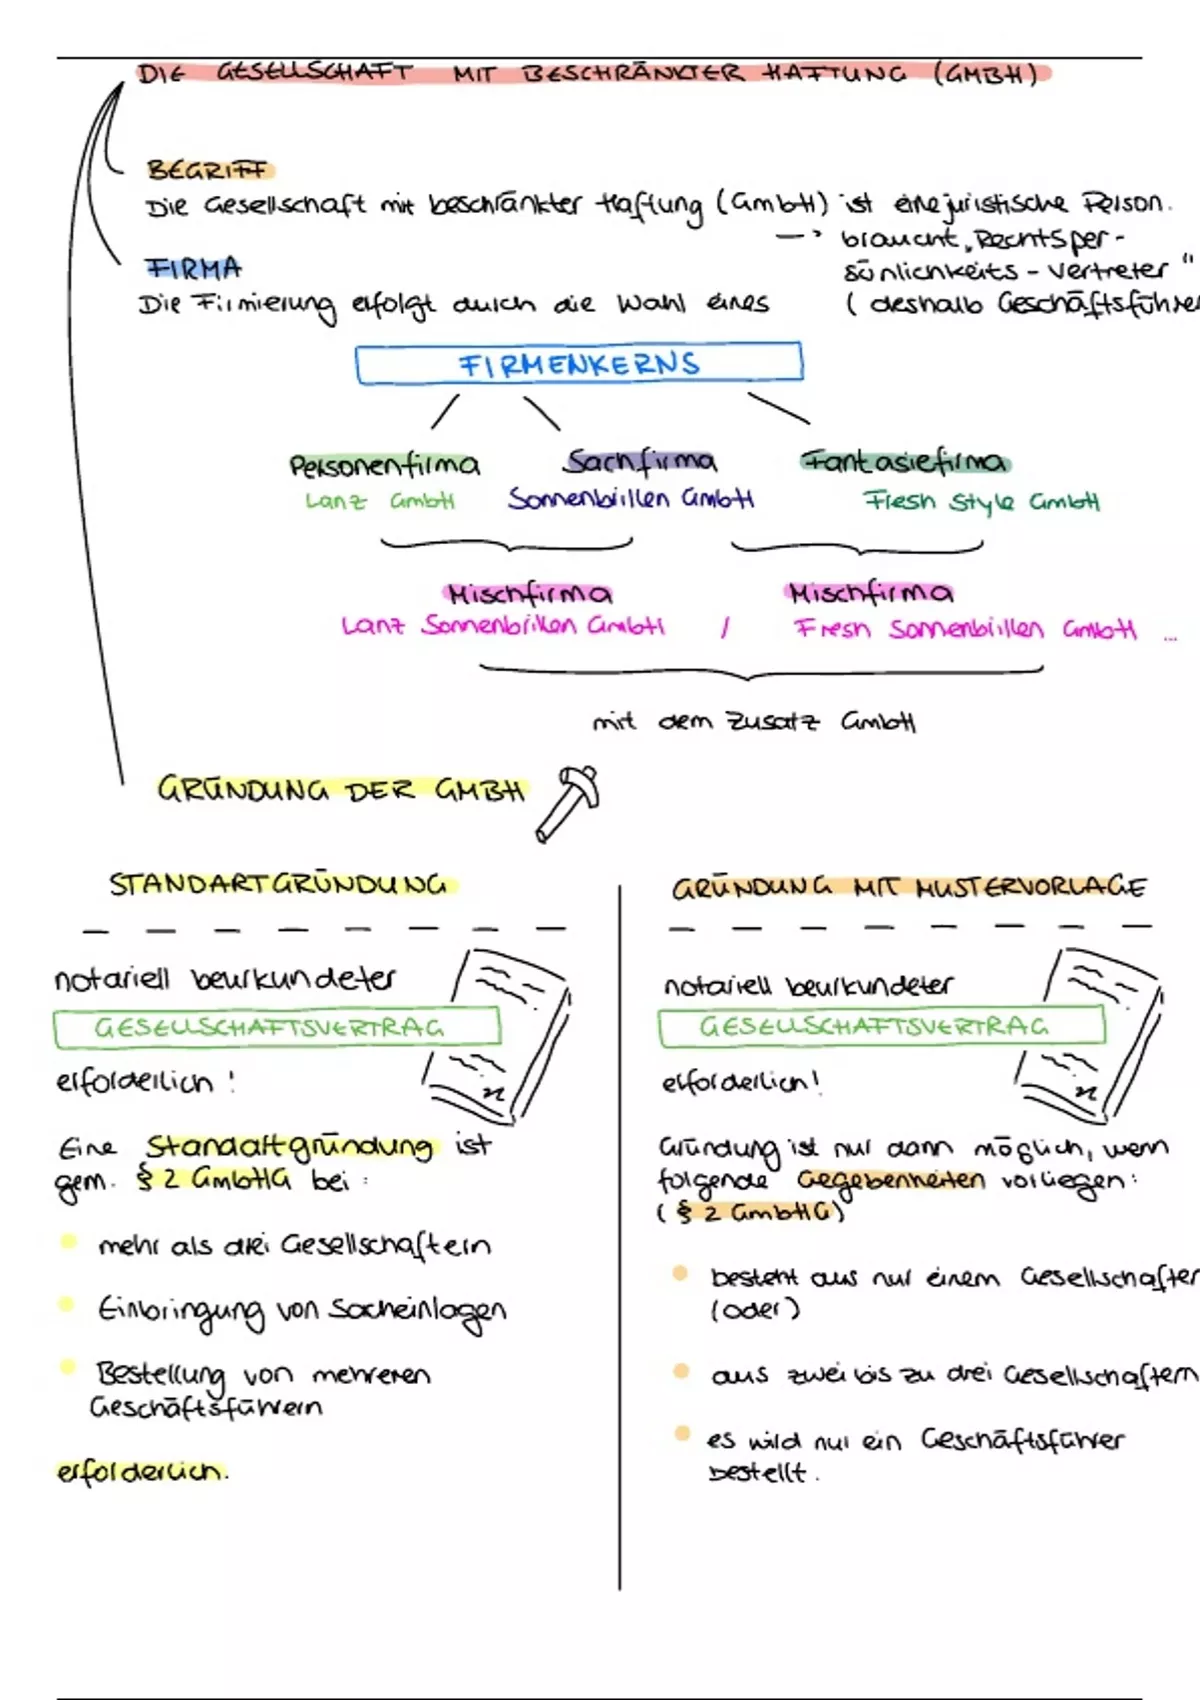 DIE GESELLSCHAFT MIT BESCHRÄNKTER HAFTUNG (GMBH)
BEGRIFF
Die Gesellschaft mit beschränkter Haftung (GmbH) ist eine juristische Person.
braucht „Rechtsper-
sönlichkeits-Vertreter"
(deshalb Geschäftsführer
FIRMA
Die Firmierung erfolgt durch die Wahl eines
FIRMENKERNS
Personenfirma Sachfirma Fantasiefirma
Lanz GmbH Sonnenbrillen GmbH Fresh Style GmbH
Mischfirma Mischfirma
Lanz Sonnenbrillen GmbH / Fresh Sonnenbrillen GmbH ...
mit dem Zusatz GmbH
GRÜNDUNG DER GMBH
STANDARTGRÜNDUNG
notariell beurkundeter
GESELLSCHAFTSVERTRAG
erforderlich!
Eine Standartgründung ist
gem. § 2 GmbHG bei:
mehr als drei Gesellschaftern
Einbringung von Sacheinlagen
Bestellung von mehreren
Geschäftsführern
erforderlich.
GRÜNDUNG MIT MUSTERVORLAGE
notariell beurkundeter
GESELLSCHAFTSVERTRAG
erforderlich!
Gründung ist nur dann möglich, wenn
folgende Gegebenheiten vorliegen:
(§ 2 GmbHG)
besteht aus nur einem Gesellschafter
(oder)
aus zwei bis zu drei Gesellschaftern
es wird nur ein Geschäftsführer
bestellt.